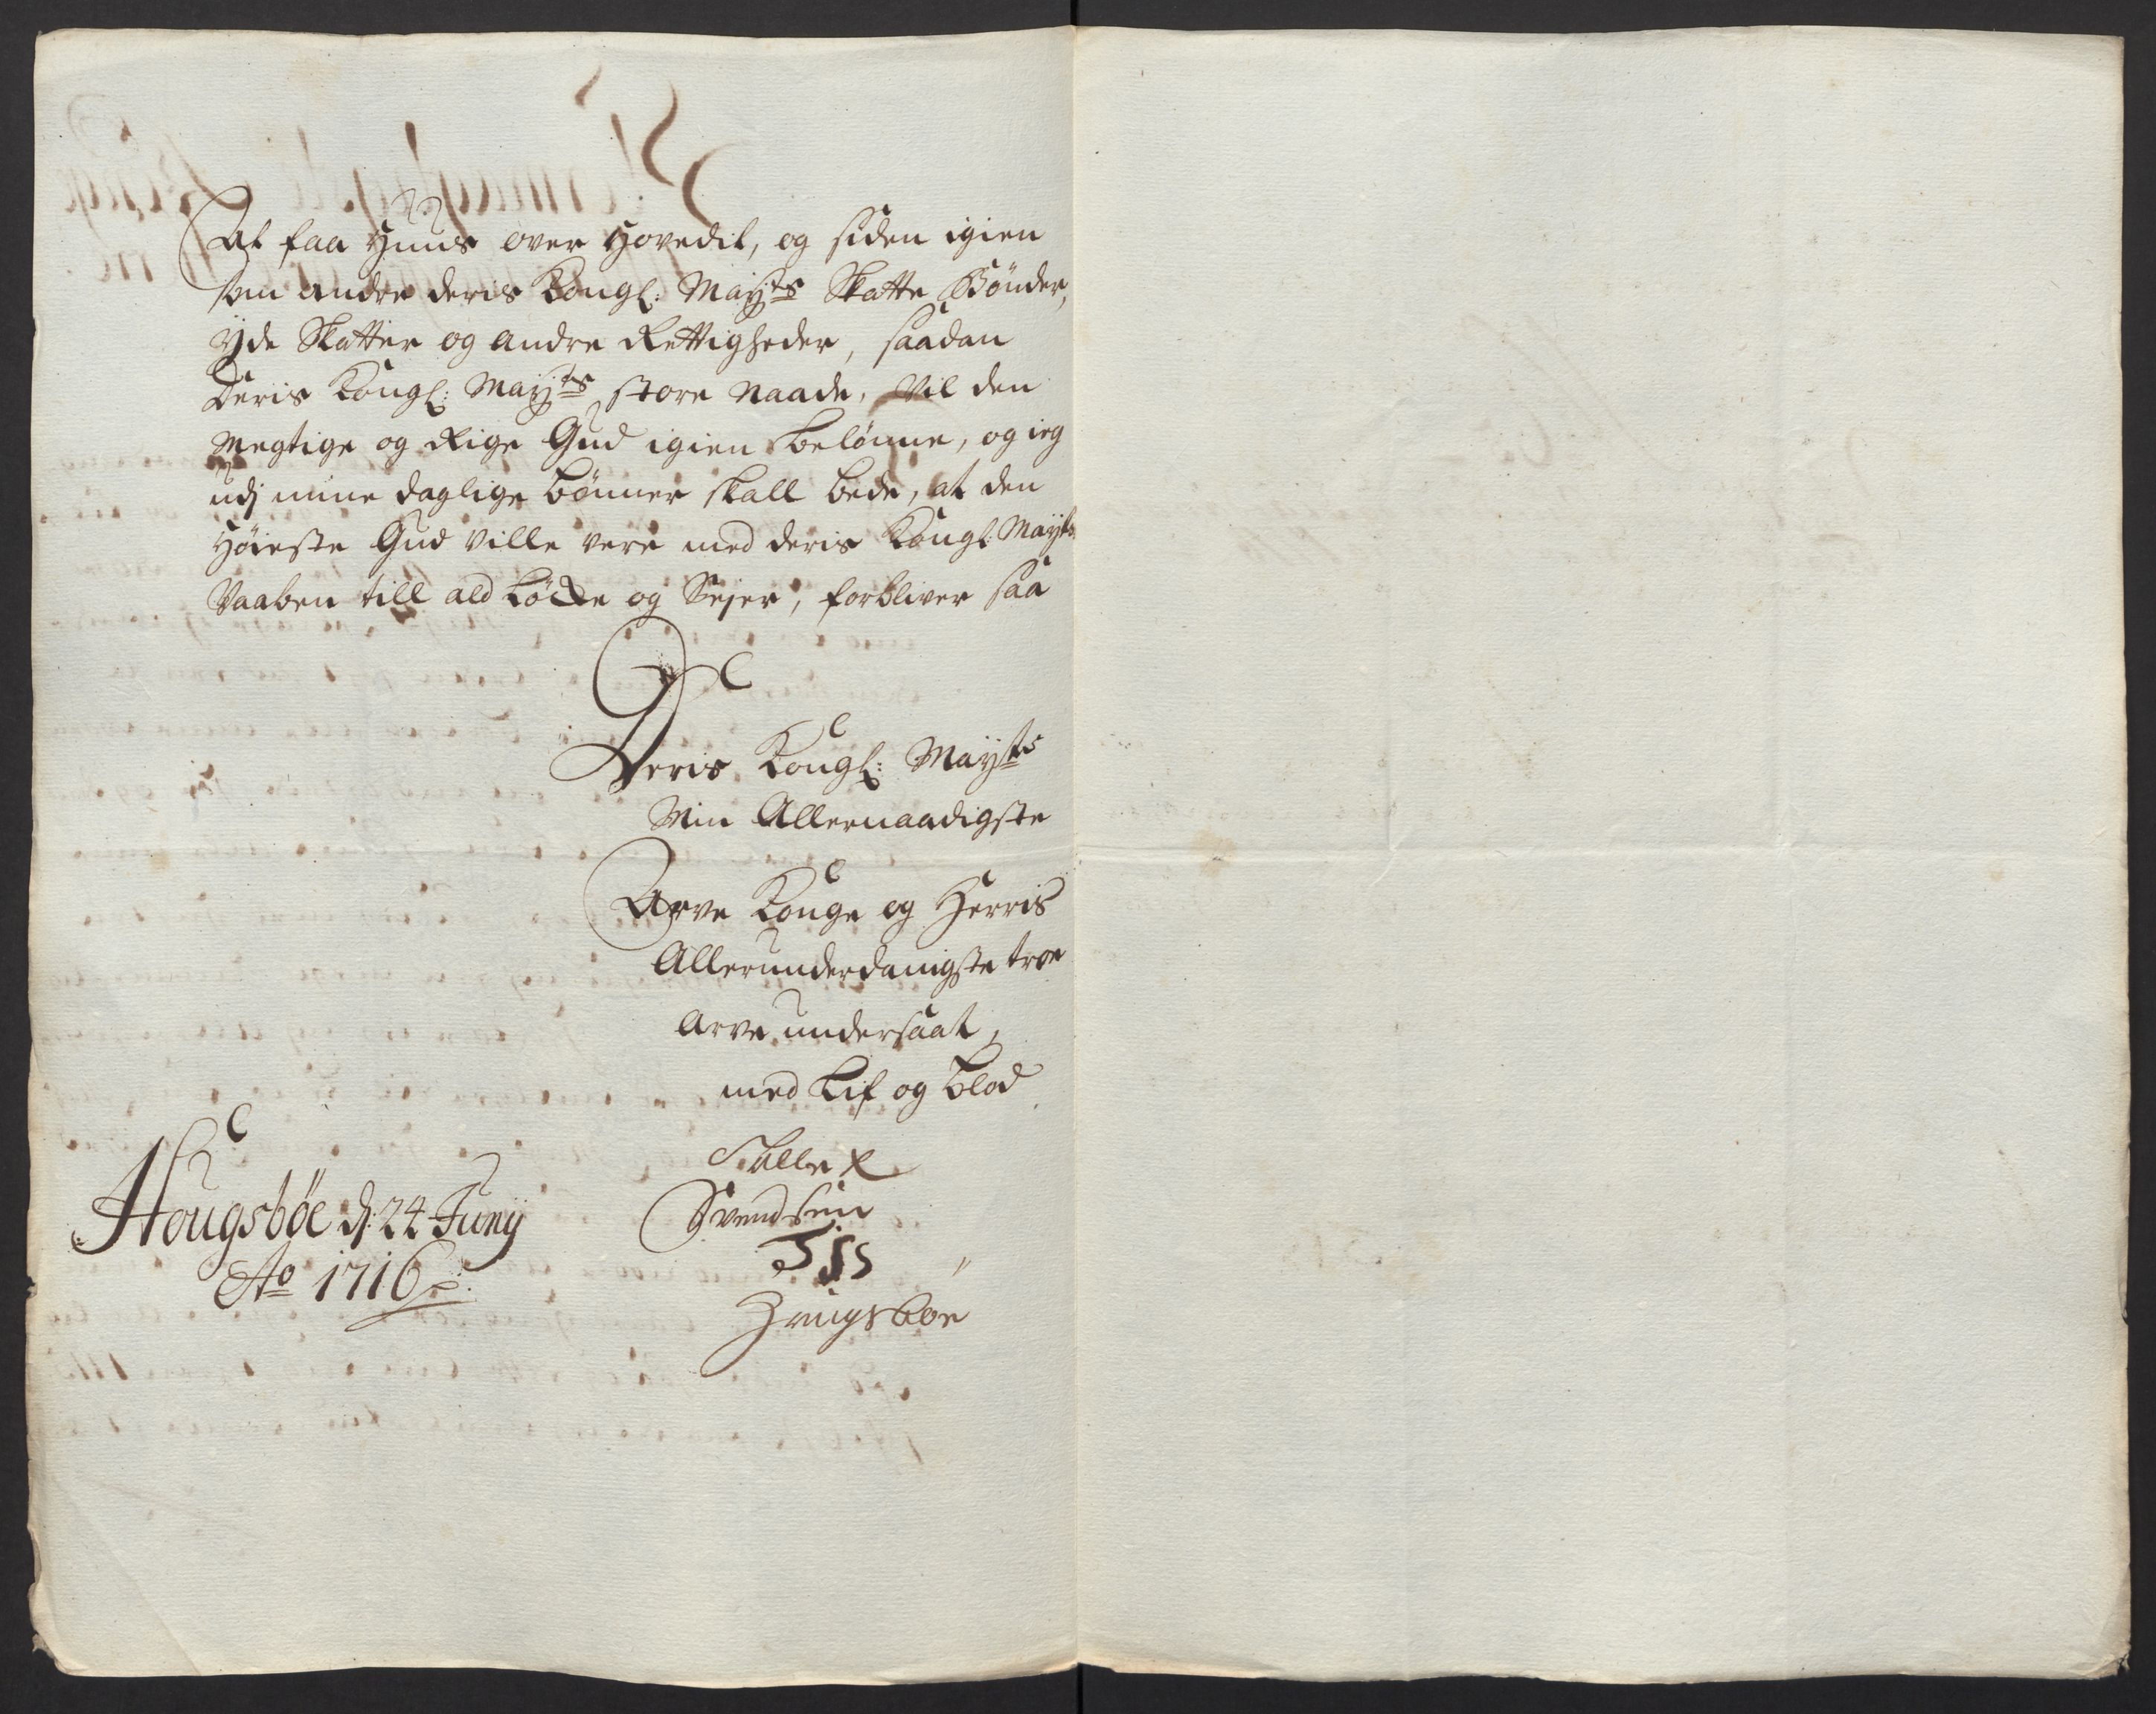 At faa Huus over Hovedit, og siden igien
som andre deris Kongl: Mayts Skatte Bønder,
Yde Skatter og andre Rettigheder, saadan
Deris Kongl: Mayts store Naade, Vil den
Megtige og Rige Gud igien belønne, og ieg
udj mine daglige bønner skall bede, at den
Høieste Gud ville vere med deris Kongl: Mayts
Vaaben till ald Lökke og Sejer, forbliver saa
Deris Kongl: Mayts
Min Allernaadigste
Arve Konge og Herris
Allerunderdanigste troe
Arve undersaat,
med Lif og blod
Salle
Svendsen
SSS
Hougsböe
Hougsböe d: 24 Junij
Ao 1716